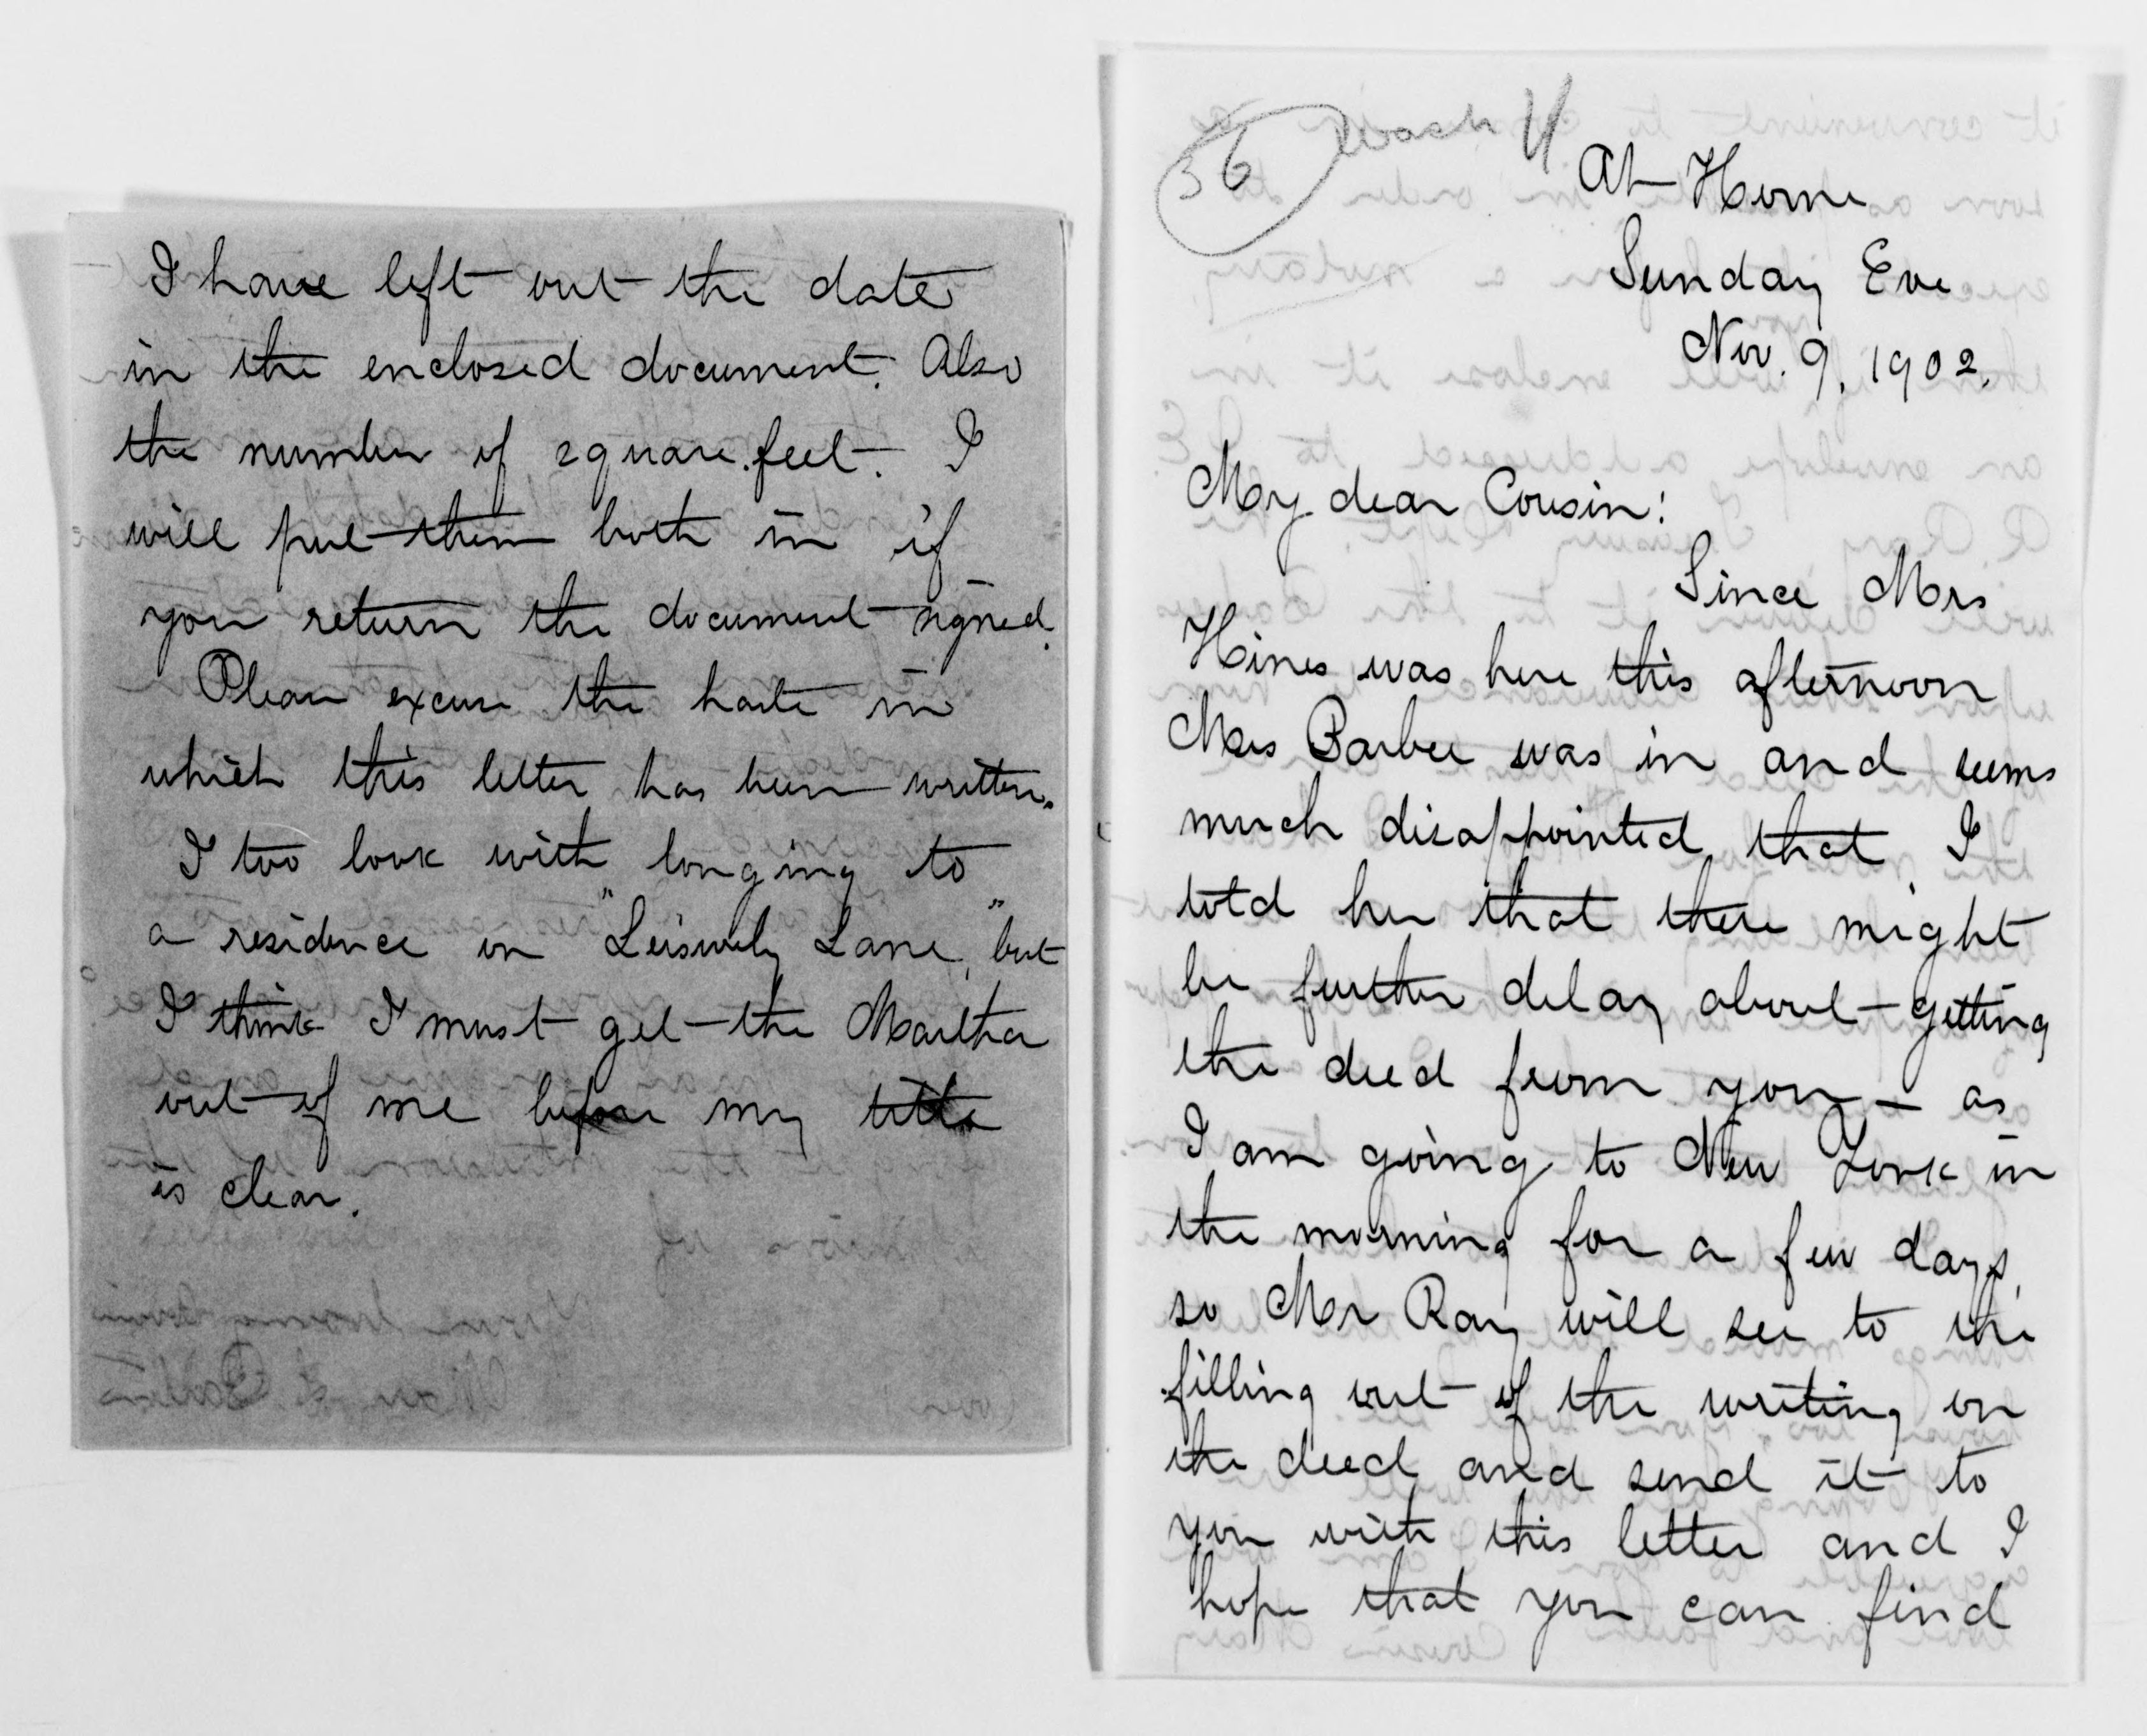 I have left out the date
in the enclosed document. Also
the number of square feet. I
will put them both in if
you return the document signed.
Please excuse the haste in
which this letter has been written.
I too look with longing to
a residence on "Leisurely Lane," but
I think I must get the Martha
out of me before my title
is clear.
36 Wash
At Home
Sunday Eve
Nov. 9, 1902.
My dear Cousin:
Since Mrs
Hines was here this afternoon
Mrs Barbee was in and seems
much disappointed that I
told her that there might
be further delay about getting
the deed from you — as
I am going to New York in
the morning for a few days,
so Mr Ray will see to the
filling out of the writing on
the deed and send it to
you with this letter and I
hope that you can find